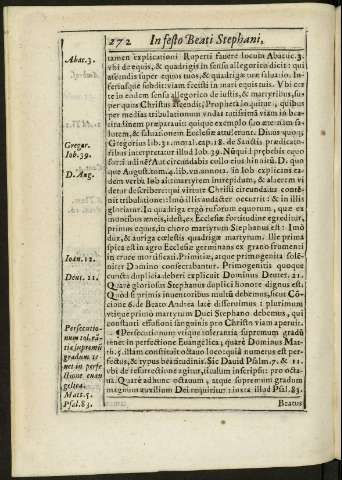 272 In festo Beati Stephani,
tamen explicationi Ruperti fauere locum Abacuc. 3.
Abac. 3.
vbi de equis, & quadrigis in sensu allegorico dicit: qui
ascendis super equos tuos, & quadrigæ tuæ saluatio. In-
feriusque subdit: viam fecisti in mari equis tuis. Vbi cer-
te in eodem sensu allegorico de iustis, & martyribus, su-
per quos Christus ascendit, Propheta loquitur, quibus
per medias tribulationum vndas tutissima viam in
lutem, & saluationem Ecclesiæ attulerunt. Diuus quoq;
Gregor.
Gregorius lib. 31. moral. cap. 18. de Sanctis prædicato-
Iob. 39.
ribus interpretatur illud Iob. 39. Nunquid præbebis equo
D. Aug.
que August. tom. 4. lib. vn. annot. in Iob explicans ea-
dem verba Iob ait: martyrem intrepidum, & alacrem vi
detur describere: qui virtute Christi circundatus conte-
nit tribulationes: Imo illis audacter occurrit: & in illis
gloriatur. In quadriga ergo ruforum equorum, quæ ex
montibus æneis, idest, ex Ecclesiæ fortitudine egreditur,
primus equus, in choro martyrum Stephanus est: Imo
dux, & auriga cœlestis quadrigæ martyrum. Ille prima
spica est in agro Ecclesiæ germinans ex grano frumenti
Ioan. 12.
in cruce mortificati. Primitiæ, atque primogenita solé-
niter Domino consecrabantur. Primogenitis quoque
Deut. 21.
cuncta duplicia deberi explicuit Dominus Deuter. 21.
Quare gloriosus Stephanus duplici honore dignus est.
Quod si primis inuentoribus multum debemus, sicut Có-
cione 6. de Beato Andrea latè disseruimus: plurimum
vtique primo martyrum Duci Stephano debemus, qui
constanti effusioni sanguinis pro Christo viam aperuit.
Persecutio-
num tolerá-
tia supremú
gradum te-
net in perfe-
ctione euan
gelica.
¶ Persecutionum vtique tolerantia supremum gradú
tenet in perfectione Euangelica; quare Dominus Mat-
Matt. 5.
th. 5. illam constituit octauo loco: quia numerus est per-
fectus, & typus beatitudinis. Sic Dauid Psalm. 7. & 11.
vbi de resurrectione agitur, titulum inscripsit: pro octa-
ua. Quare ad hunc octauum, atque supremum gradum
Psal. 83.
magnum auxilium Dei requiritur: iuxta illud Psal. 83.
Beatus